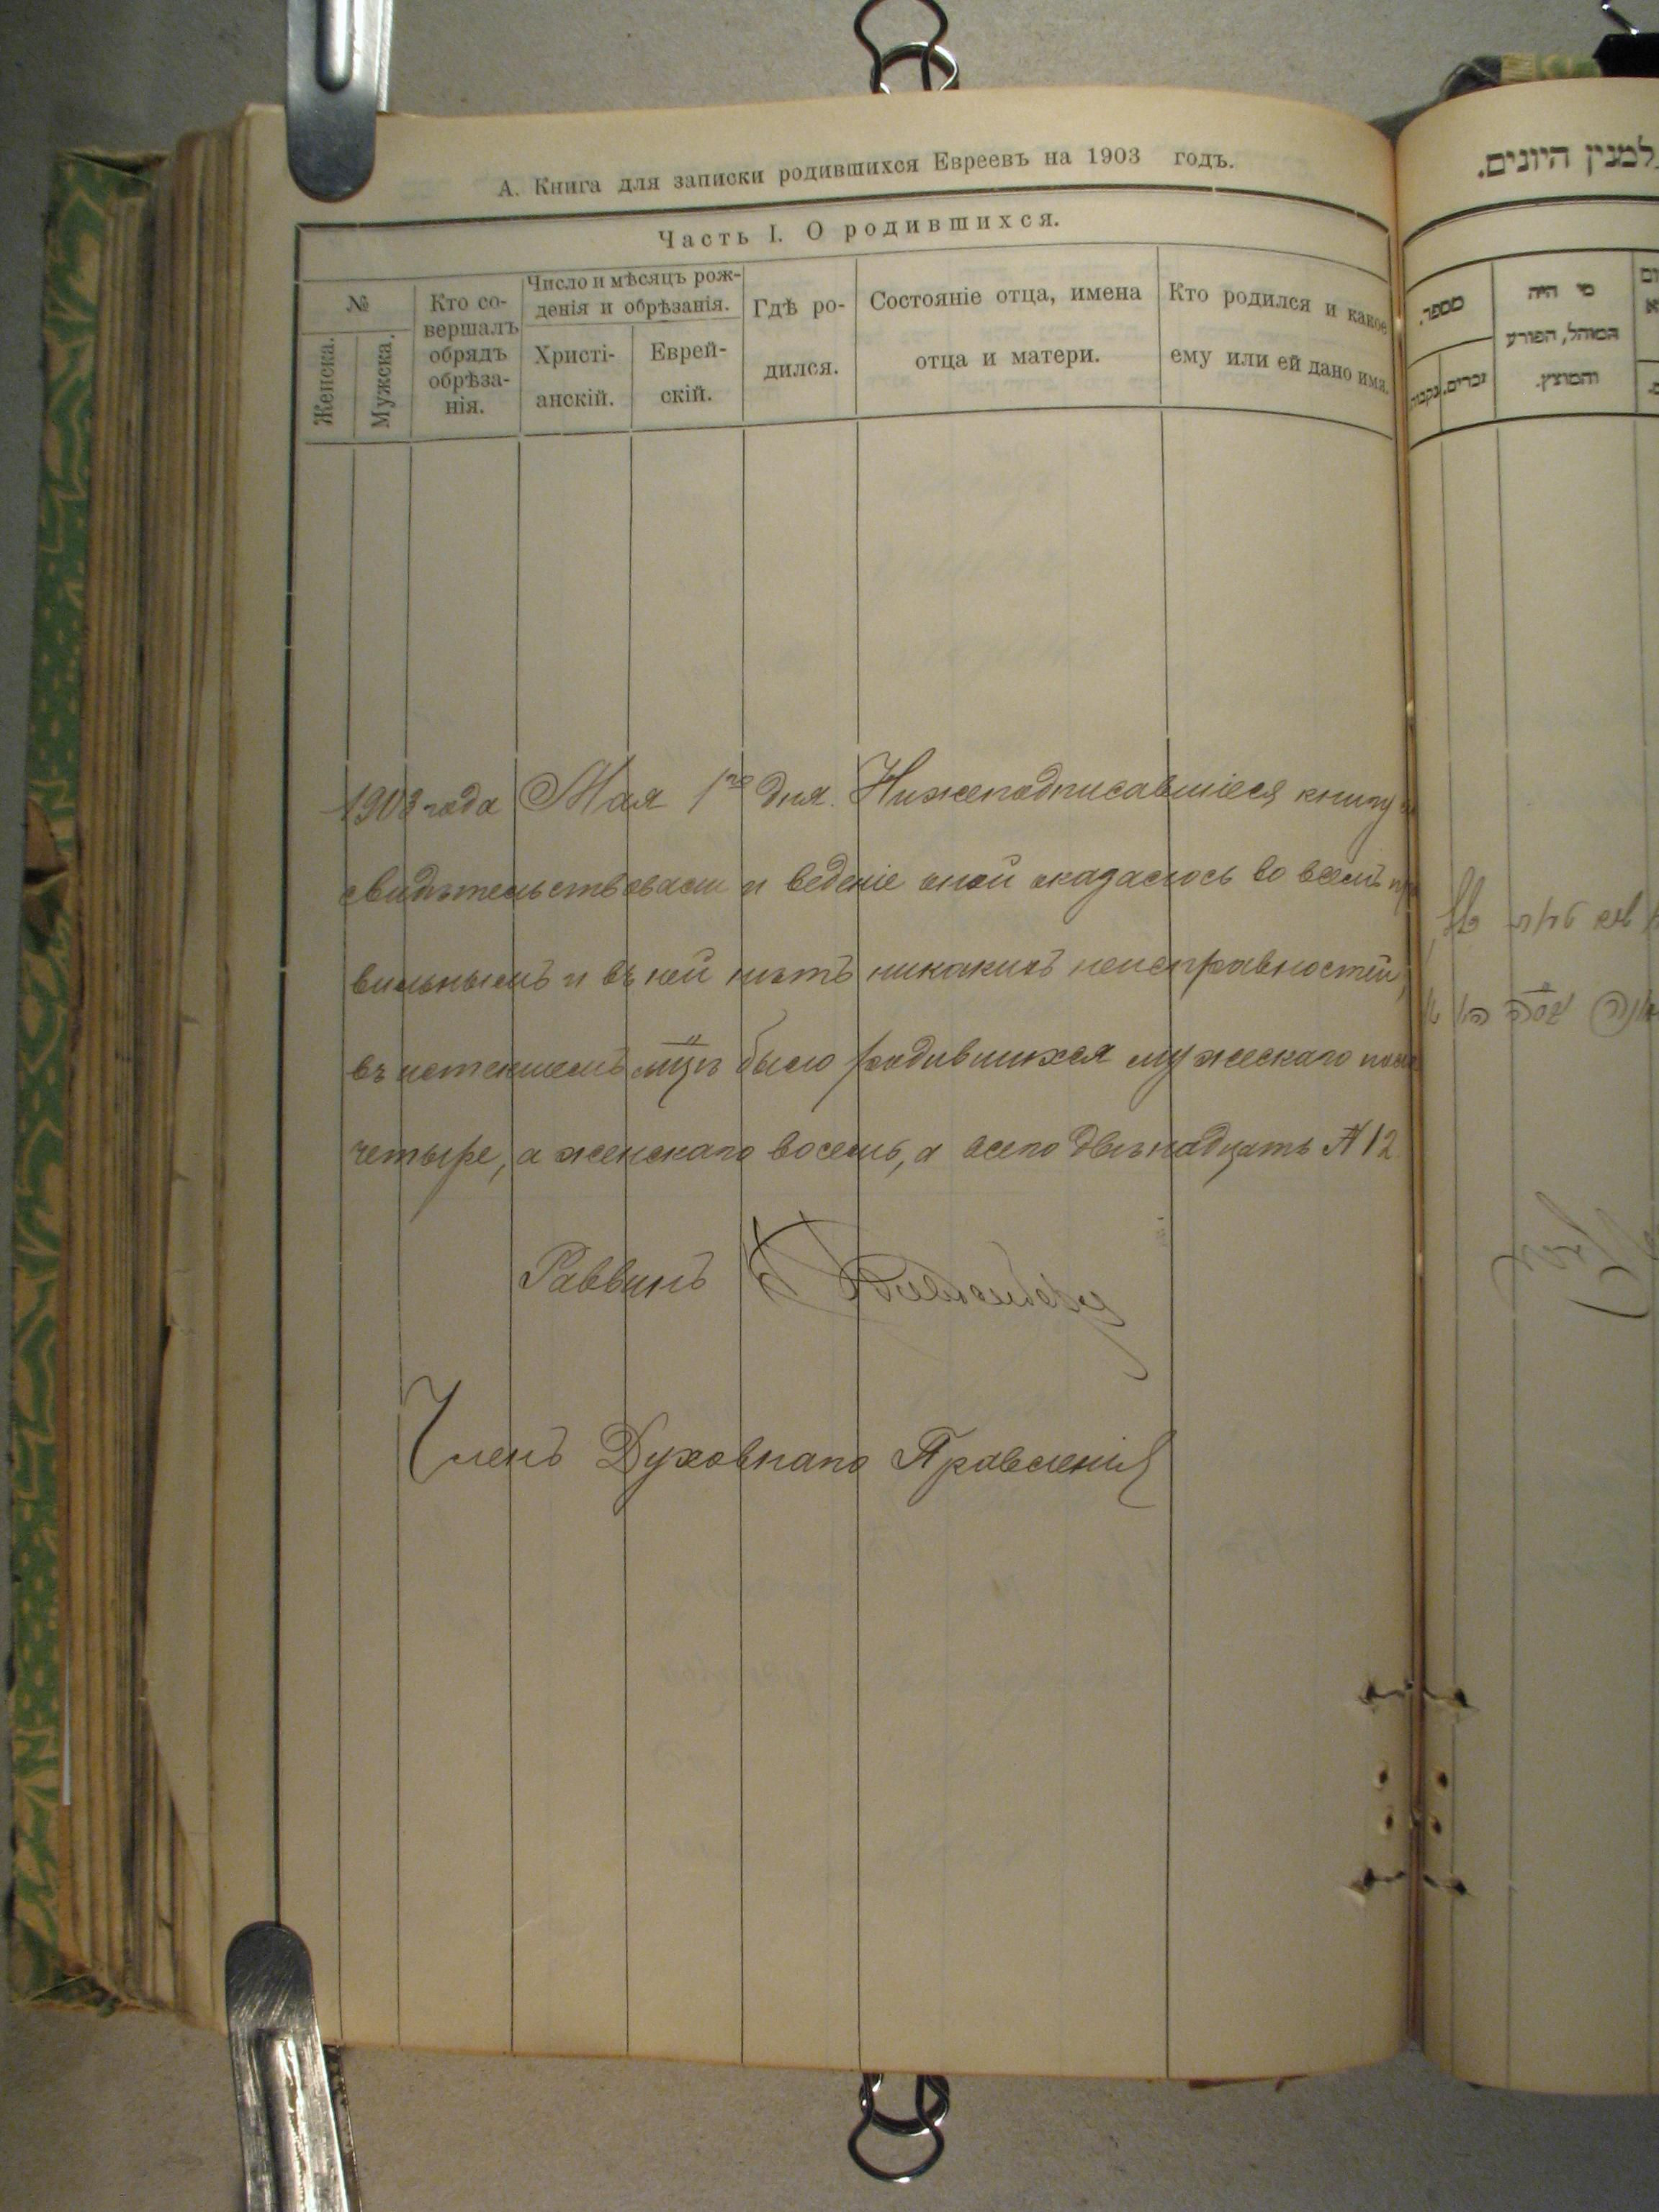 А. Книга для записки родившихся Евреевъ на 1903 годъ.
Часть I. О родившихся.
№
Женска.
Мужска.
Кто со-
вершалъ
обрядъ
обрѣза-
нія.
Число и мѣсяцъ рож-
денія и обрѣзанія.
Христі-
анскій.
Еврей-
скій.
Гдѣ ро-
дился.
Состояніе отца, имена
отца и матери.
Кто родился и какое
ему или ей дано имя.
1903 года Мая 1го дня. Нижеподписавшіеся книгу
свидѣтельствовали и веденіе оной оказалось во всемъ пра
вильнымъ и въ ней нѣтъ никакихъ неисправностей,
въ истекшемъ мцѣ было родившихся мужескаго пола
четыре, а женскаго восемь, а всего двѣнадцать № 12
Раввинъ
Членъ Духовнаго Правленія
למנין היונים.
מספר.
נקבות
זכרים.
מי היה
המוהל, הפורע
והמוצץ.